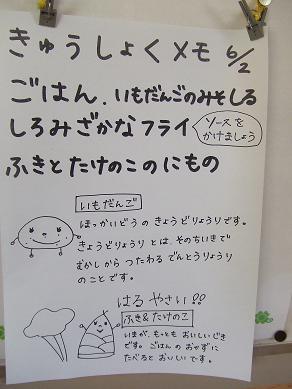 きゅうしょくメモ 6/2
ごはん、いもだんごのみそしる
しろみざかなフライ
ソースを
かけましょう
ふきとたけのこのにもの
いもだんご
ほっかいどうのきょうどりょうりです。
きょうどりょうりとは、そのちいきで
むかしからつたわるでんとうりょうり
のことです。
はるやさい!!
ふき&たけのこ
いまが、もっともおいしいじき
です。ごはんのおかずに
たべるとおいしいです。